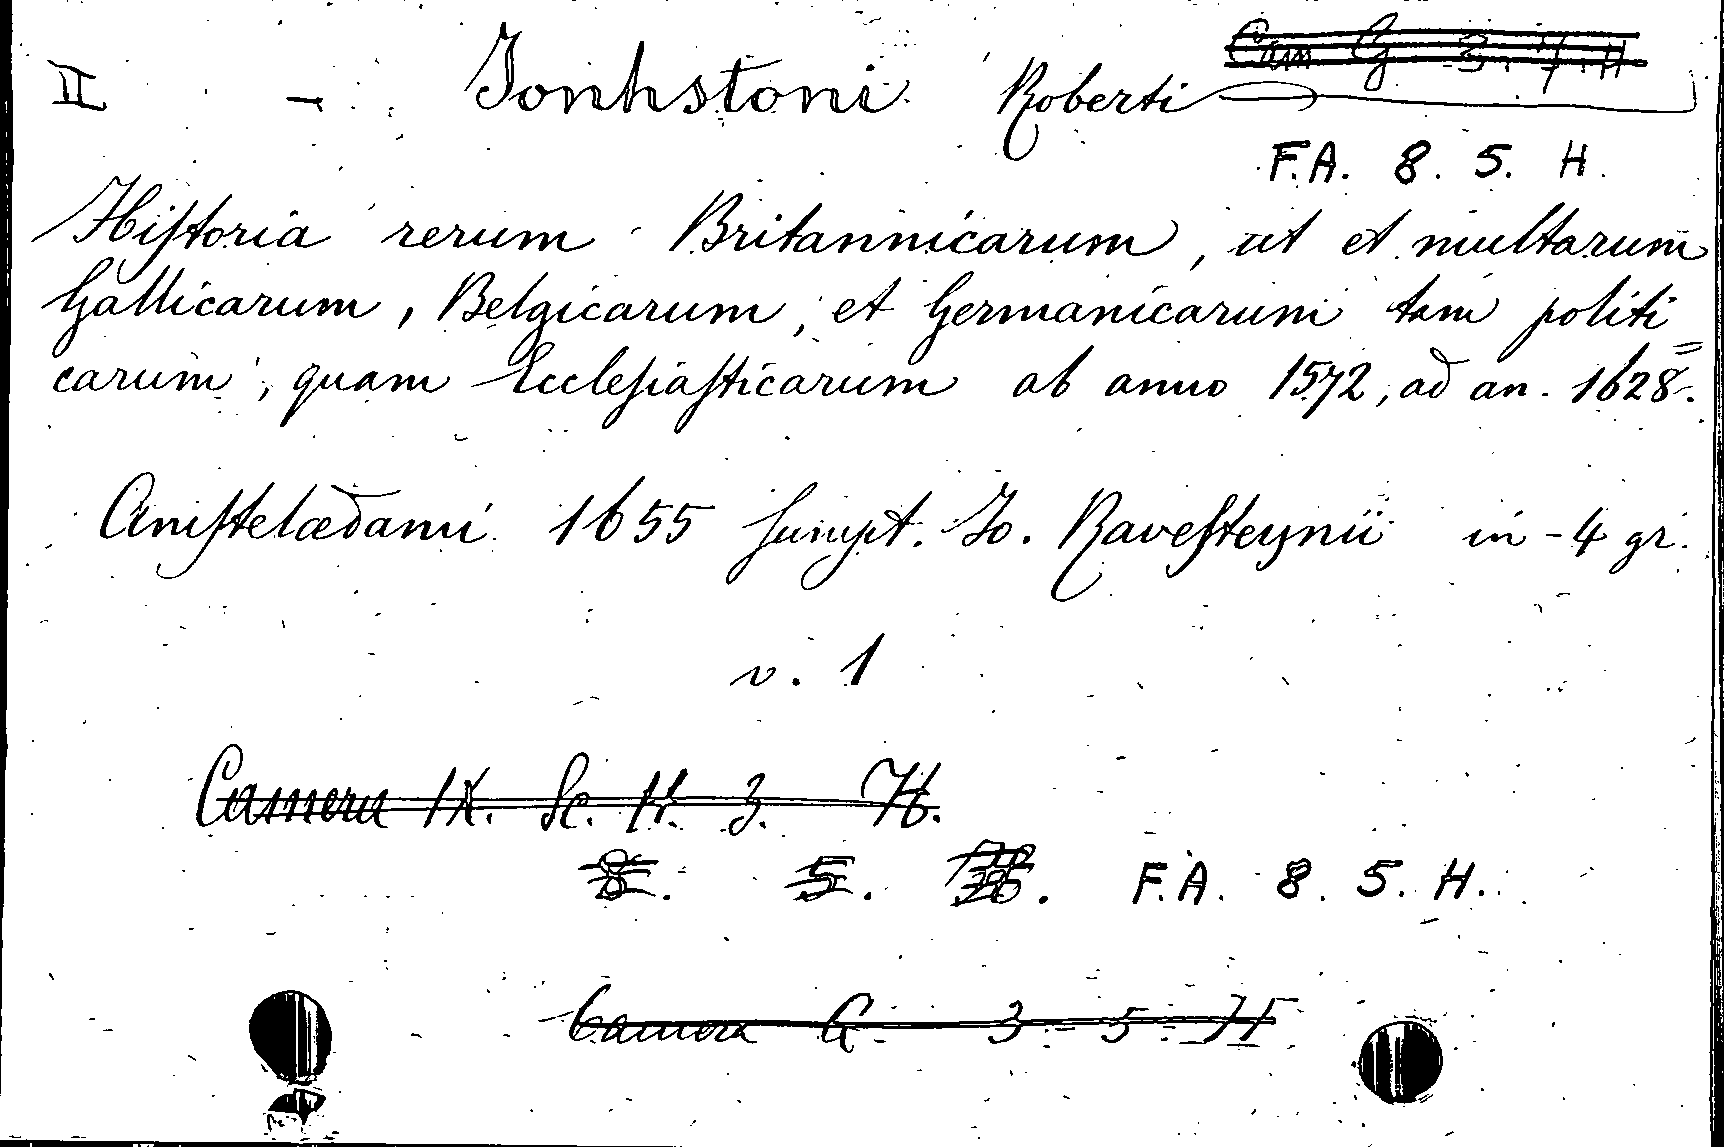 Cam G 3. 7. H
II - Jonhstoni Roberti
F.A. 8. 5. H.
Hiſtoria rerum Britannicarum, ut et multarum
Gallicarum, Belgicarum, et Germanicarum tam politi=
carum, quam Eccleſiaſticarum ab anno 1572, ad an. 1628.
Amſtelædami 1655 ſumpt. Jo. Raveſteynii in-4 gr.
v. 1
Camera IX. Sc. 11. 3. H.
8. 5. F.A. 8. 5. H.
Camera G. 3 - 5 - H